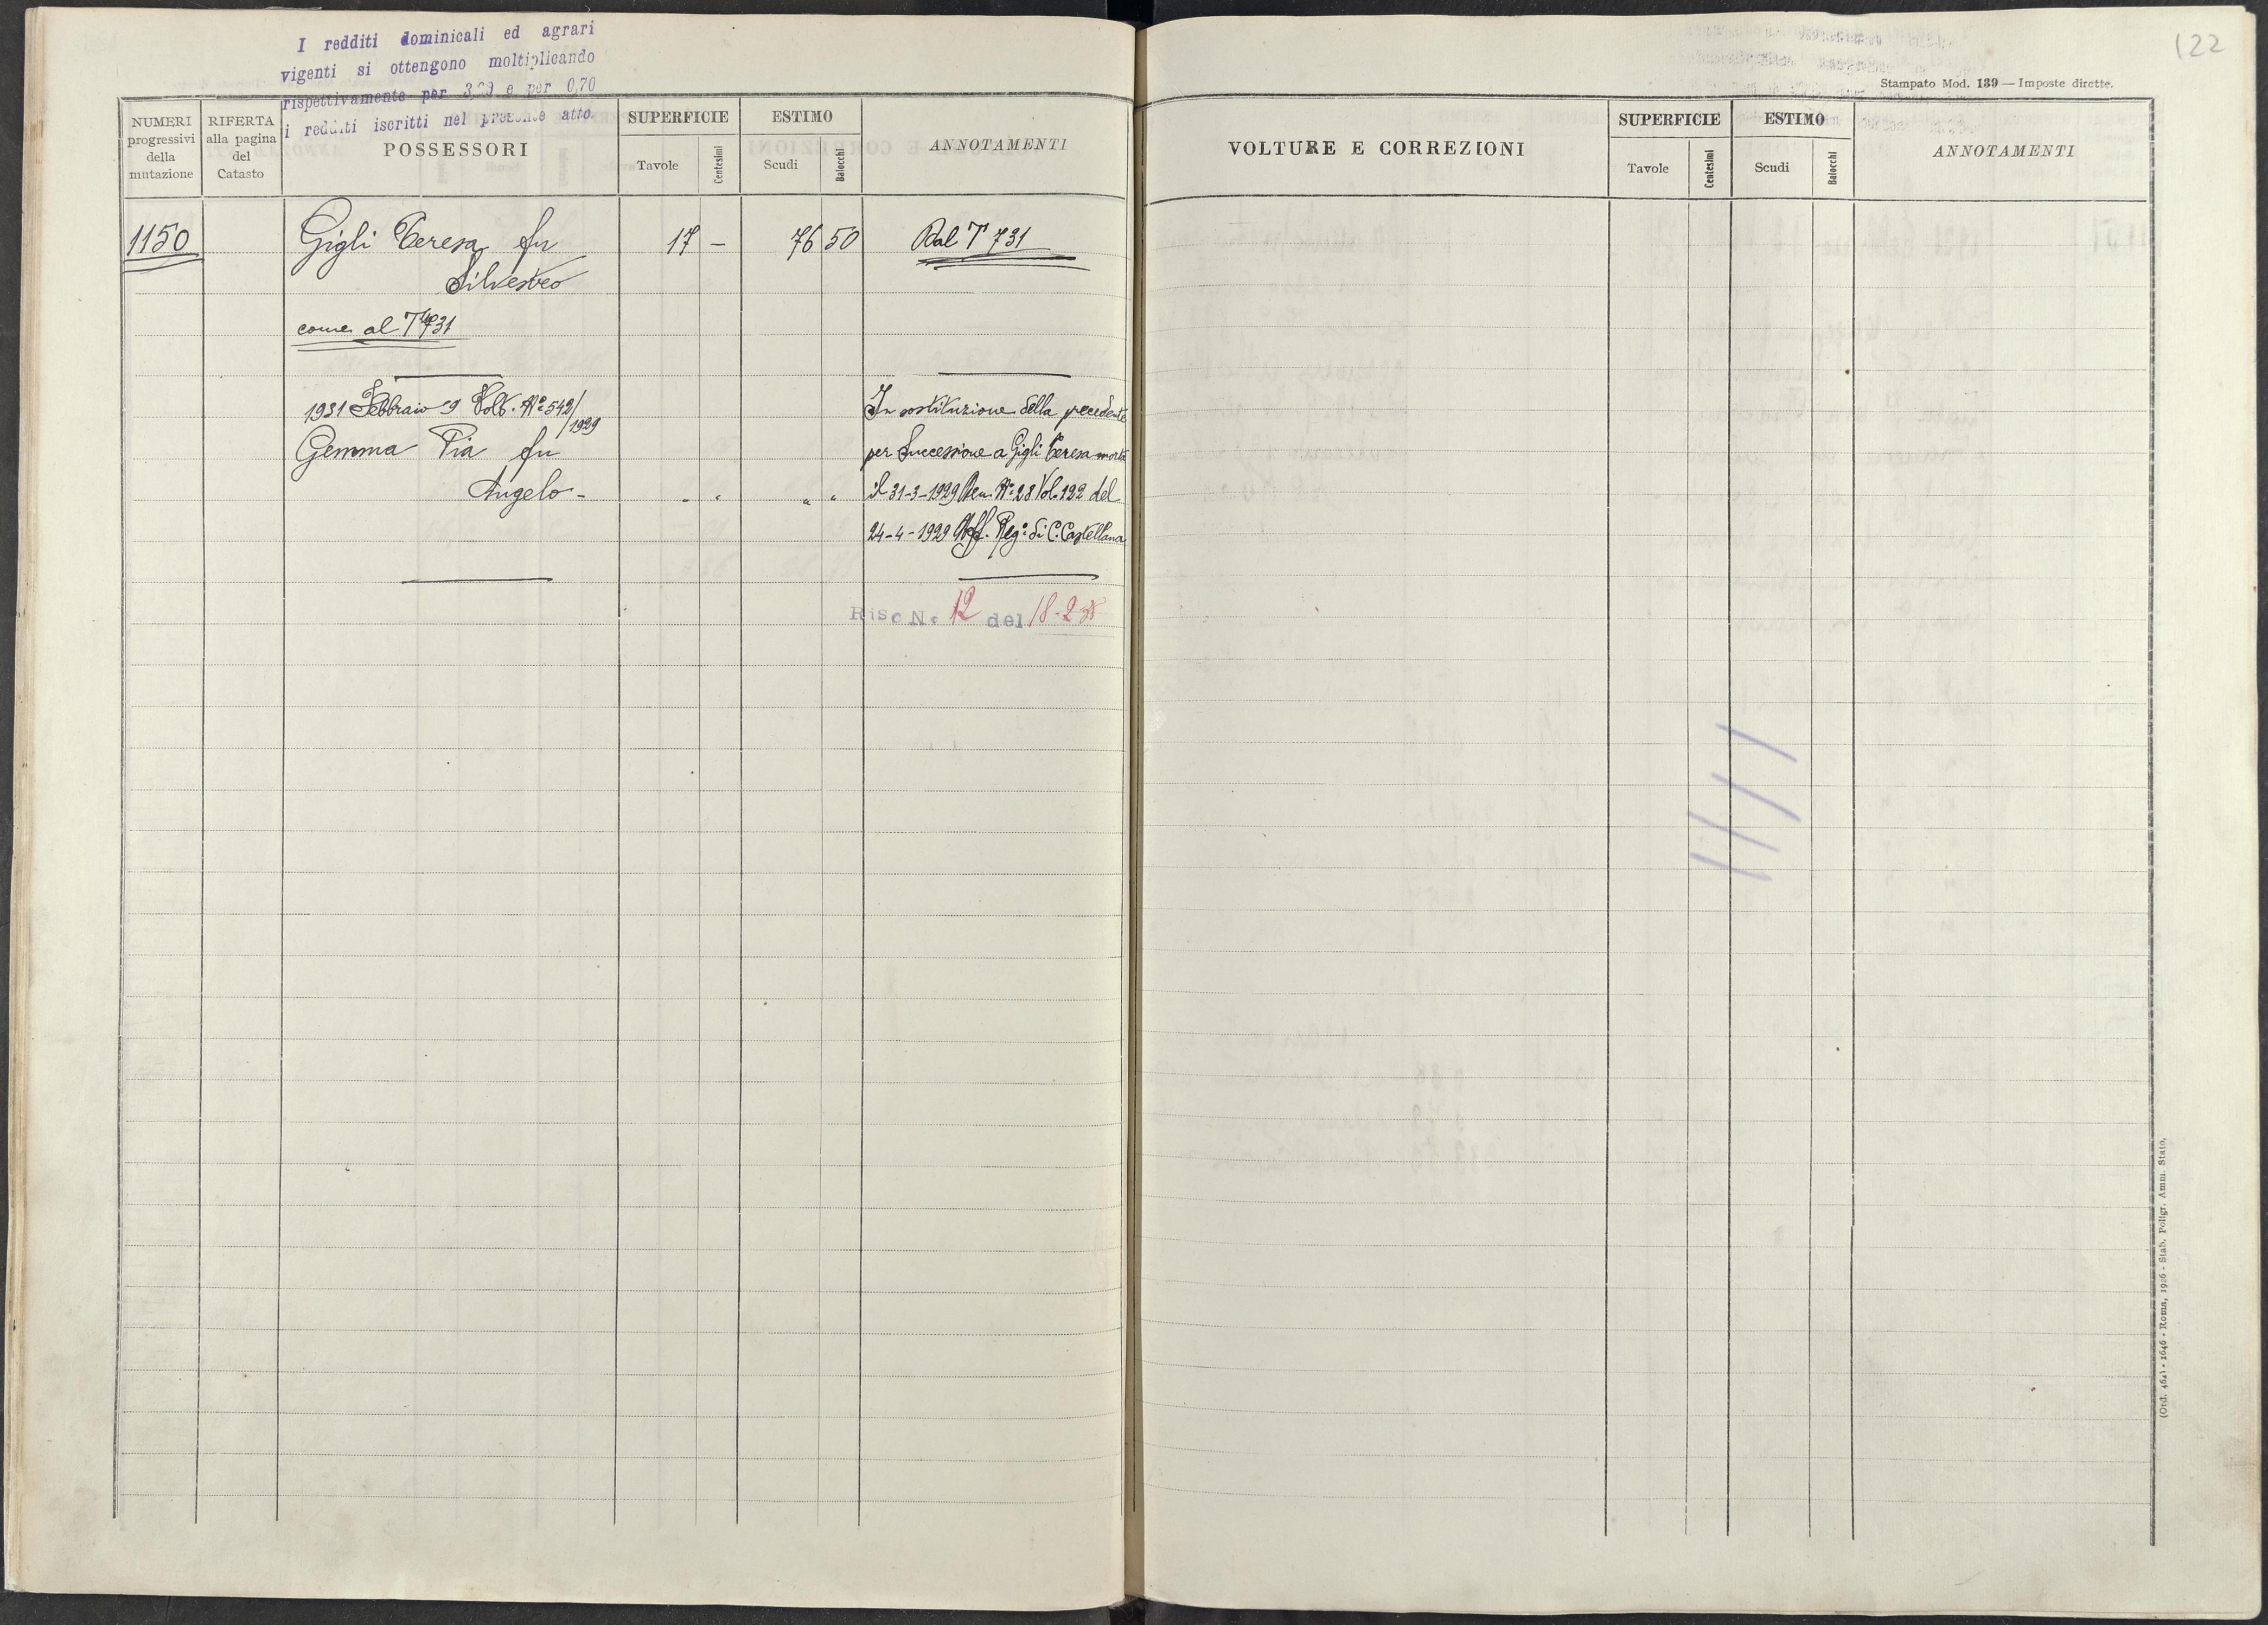 I redditi dominicali ed agrari
vigenti si ottengono moltiplicando
rispettivamente per e per 0,70
i redditi iscritti nel presente atto.
NUMERI progressivi della mutazione
RIFERTA alla pagina del Catasto
POSSESSORI
SUPERFICIE
Tavole
Centesimi
ESTIMO
Scudi
Baiocchi
ANNOTAMENTI
1150 Gigli Teresa fu 17 — 76 50 Dal T 731
Silvestro
come al T 731
1931 Febbraio 9 Volt. Nº 542/1929
Gemma Pia fu
Angelo - " " " "
In sostituzione della precedente
per Successione a Gigli Teresa morta
il 31-3-1929 Den. Nº 28 Vol. 122 del
24-4-1929 Uff. Reg. di C. Castellana
Risc N. 12 del 18-2-
122
Stampato Mod. 139 — Imposte dirette.
VOLTURE E CORREZIONI
SUPERFICIE
Tavole
Centesimi
ESTIMO
Scudi
Baiocchi
ANNOTAMENTI
1646 - Roma, 1926 - Stab. Poligr. Amm. Stato.